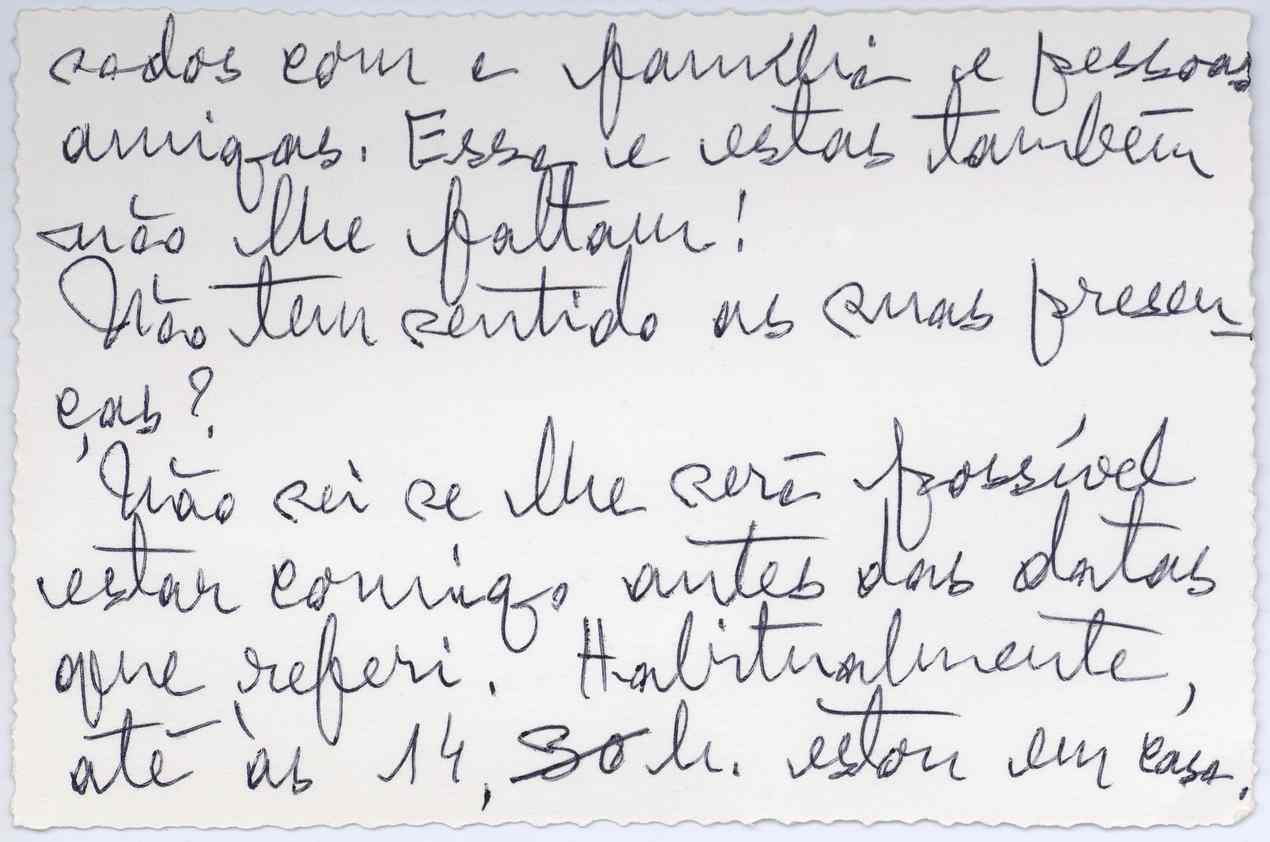 sados com a família e pessoas
amigas. Essa e estas também
não lhe faltam!
Não tem sentido as suas presen-
ças?
Não sei se lhe será possível
estar comigo antes das datas
que referi. Habitualmente,
até às 14,30 h. estou em casa.